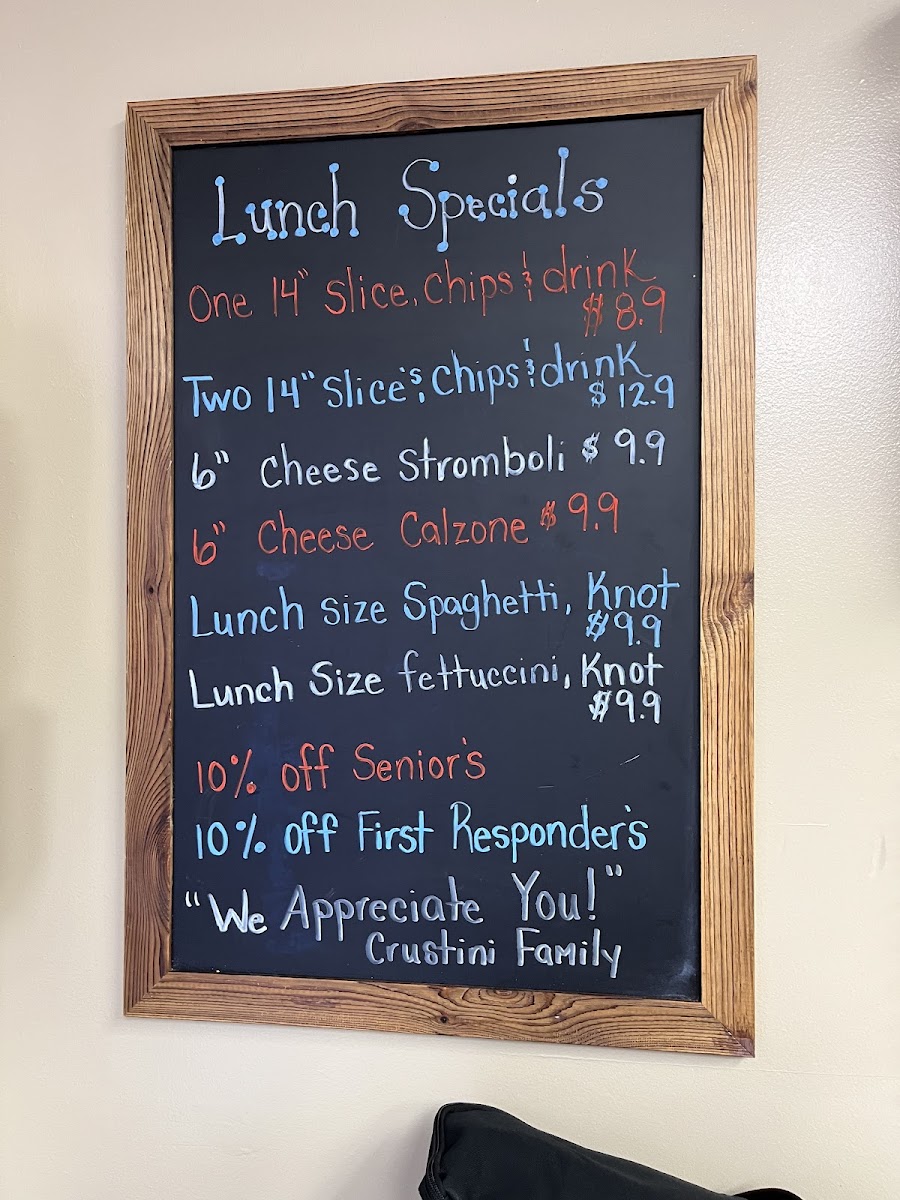 Lunch Specials
One 14" Slice, Chips & drink
$8.9
Two 14" Slice's, Chips & drink
$12.9
6" Cheese Stromboli $9.9
6" Cheese Calzone $9.9
Lunch size Spaghetti, Knot
$9.9
Lunch Size fettuccini, Knot
$9.9
10% off Senior's
10% off First Responder's
"We Appreciate You!"
Crustini Family